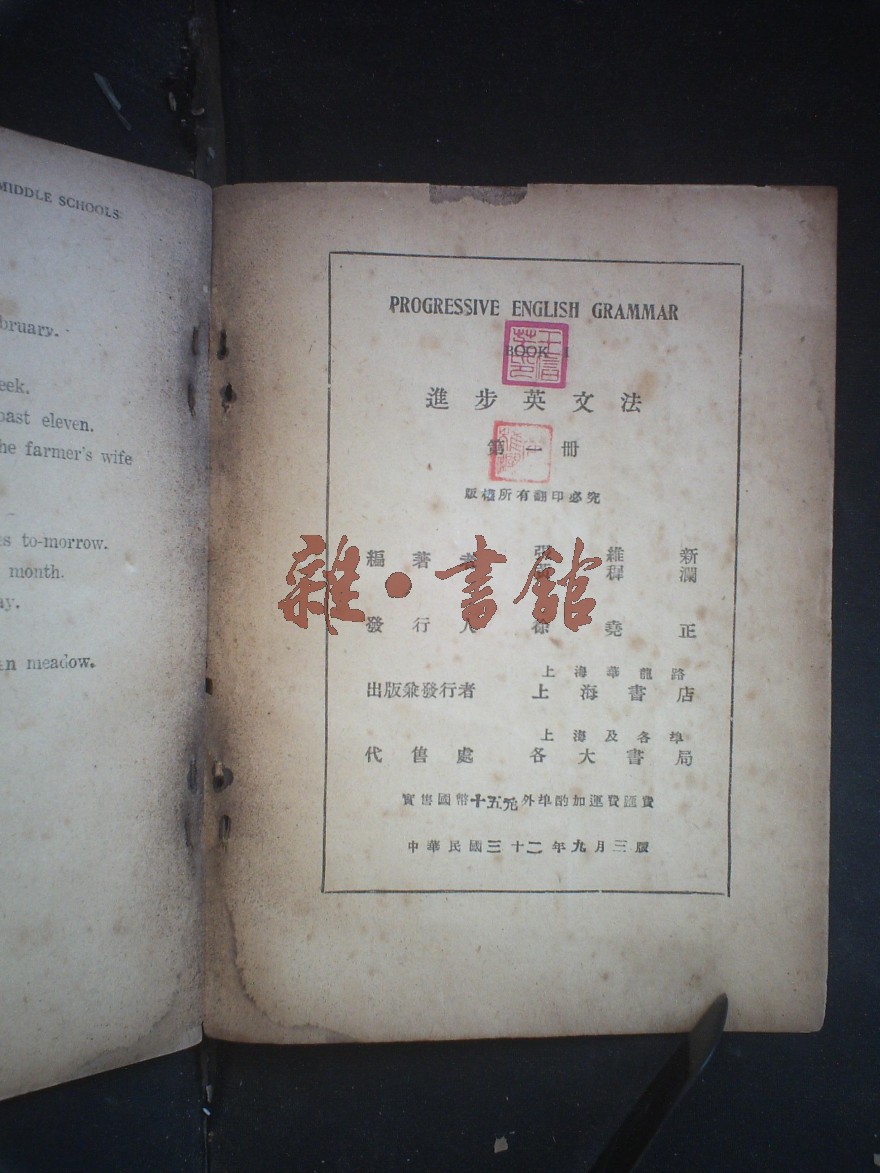 MIDDLE SCHOOLS
bruary.
eek.
past eleven.
he farmer's wife
es to-morrow.
month.
ay.
an meadow.
PROGRESSIVE ENGLISH GRAMMAR
BOOK I
進步英文法
第一冊
版權所有翻印必究
編著者 張維新
釋瀾
發行人 徐堯正
上海華龍路
出版兼發行者 上海書店
上海及各埠
代售處 各大書局
實售國幣十五元外埠酌加運費匯費
中華民國三十二年九月三版
雜·書館